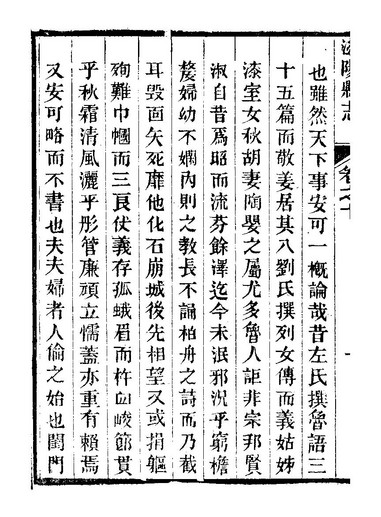 也雖然天下事安可一概論哉昔左氏撰魯語三
十五篇而敬姜居其八劉氏撰列女傳而義姑姊
漆室女秋胡妻陶嬰之屬尤多魯人詎非宗邦賢
淑自昔爲昭而流芬餘澤迄今未泯邪況乎窮檐
嫠婦幼不嫻內則之教長不誦柏舟之詩而乃截
耳毀面矢死靡他化石崩城後先相望又或捐軀
殉難巾幗而三良仗義存孤蛾眉而杵臼峻節貫
乎秋霜清風灑乎彤管廉頑立懦蓋亦重有賴焉
又安可略而不書也夫夫婦者人倫之始也閨門